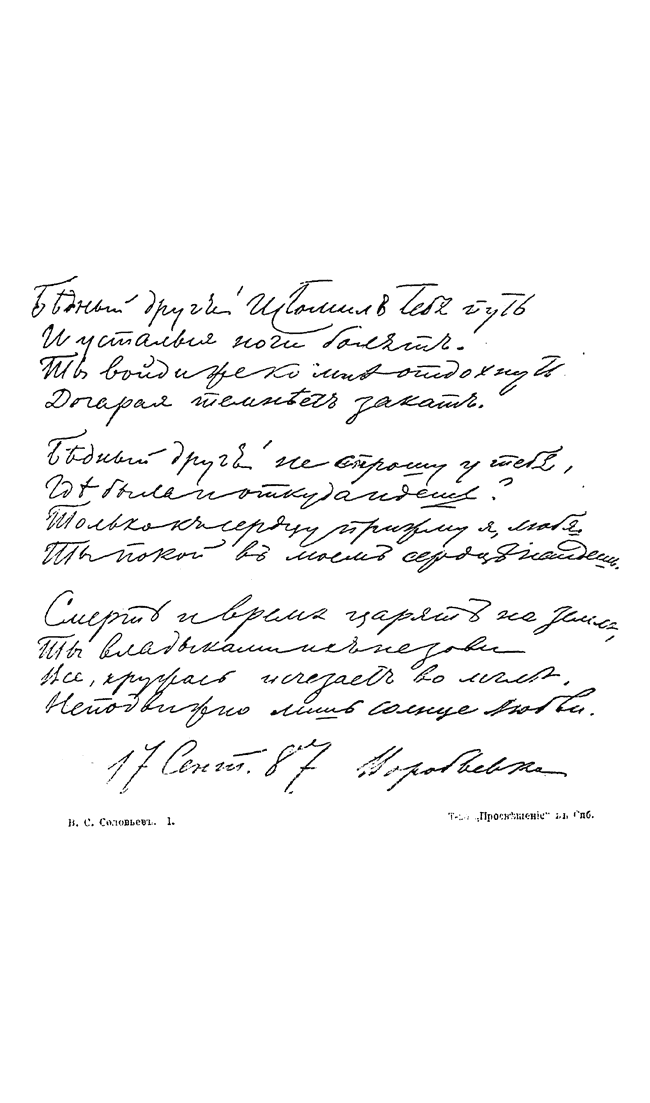 Бѣдный другъ! Истомилъ тебя путь
И усталыя ноги болятъ.
Ты войди же ко мнѣ отдохнуть
Догорая темнѣетъ закатъ.
Бѣдный другъ! не спрошу у тебя,
Гдѣ была и откуда идешь?
Только къ сердцу прижму я, любя
Ты покой въ моемъ сердцѣ найдешь.
Смерть и время царятъ на земли,
Ты владыками ихъ не зови
Все, кружась исчезаетъ во мглѣ,
Неподвижно лишь солнце любви.
17 Сент. 87 Воробьевка
В. С. Соловьевъ. 1.
Т-во „Просвѣщеніе“ въ Спб.